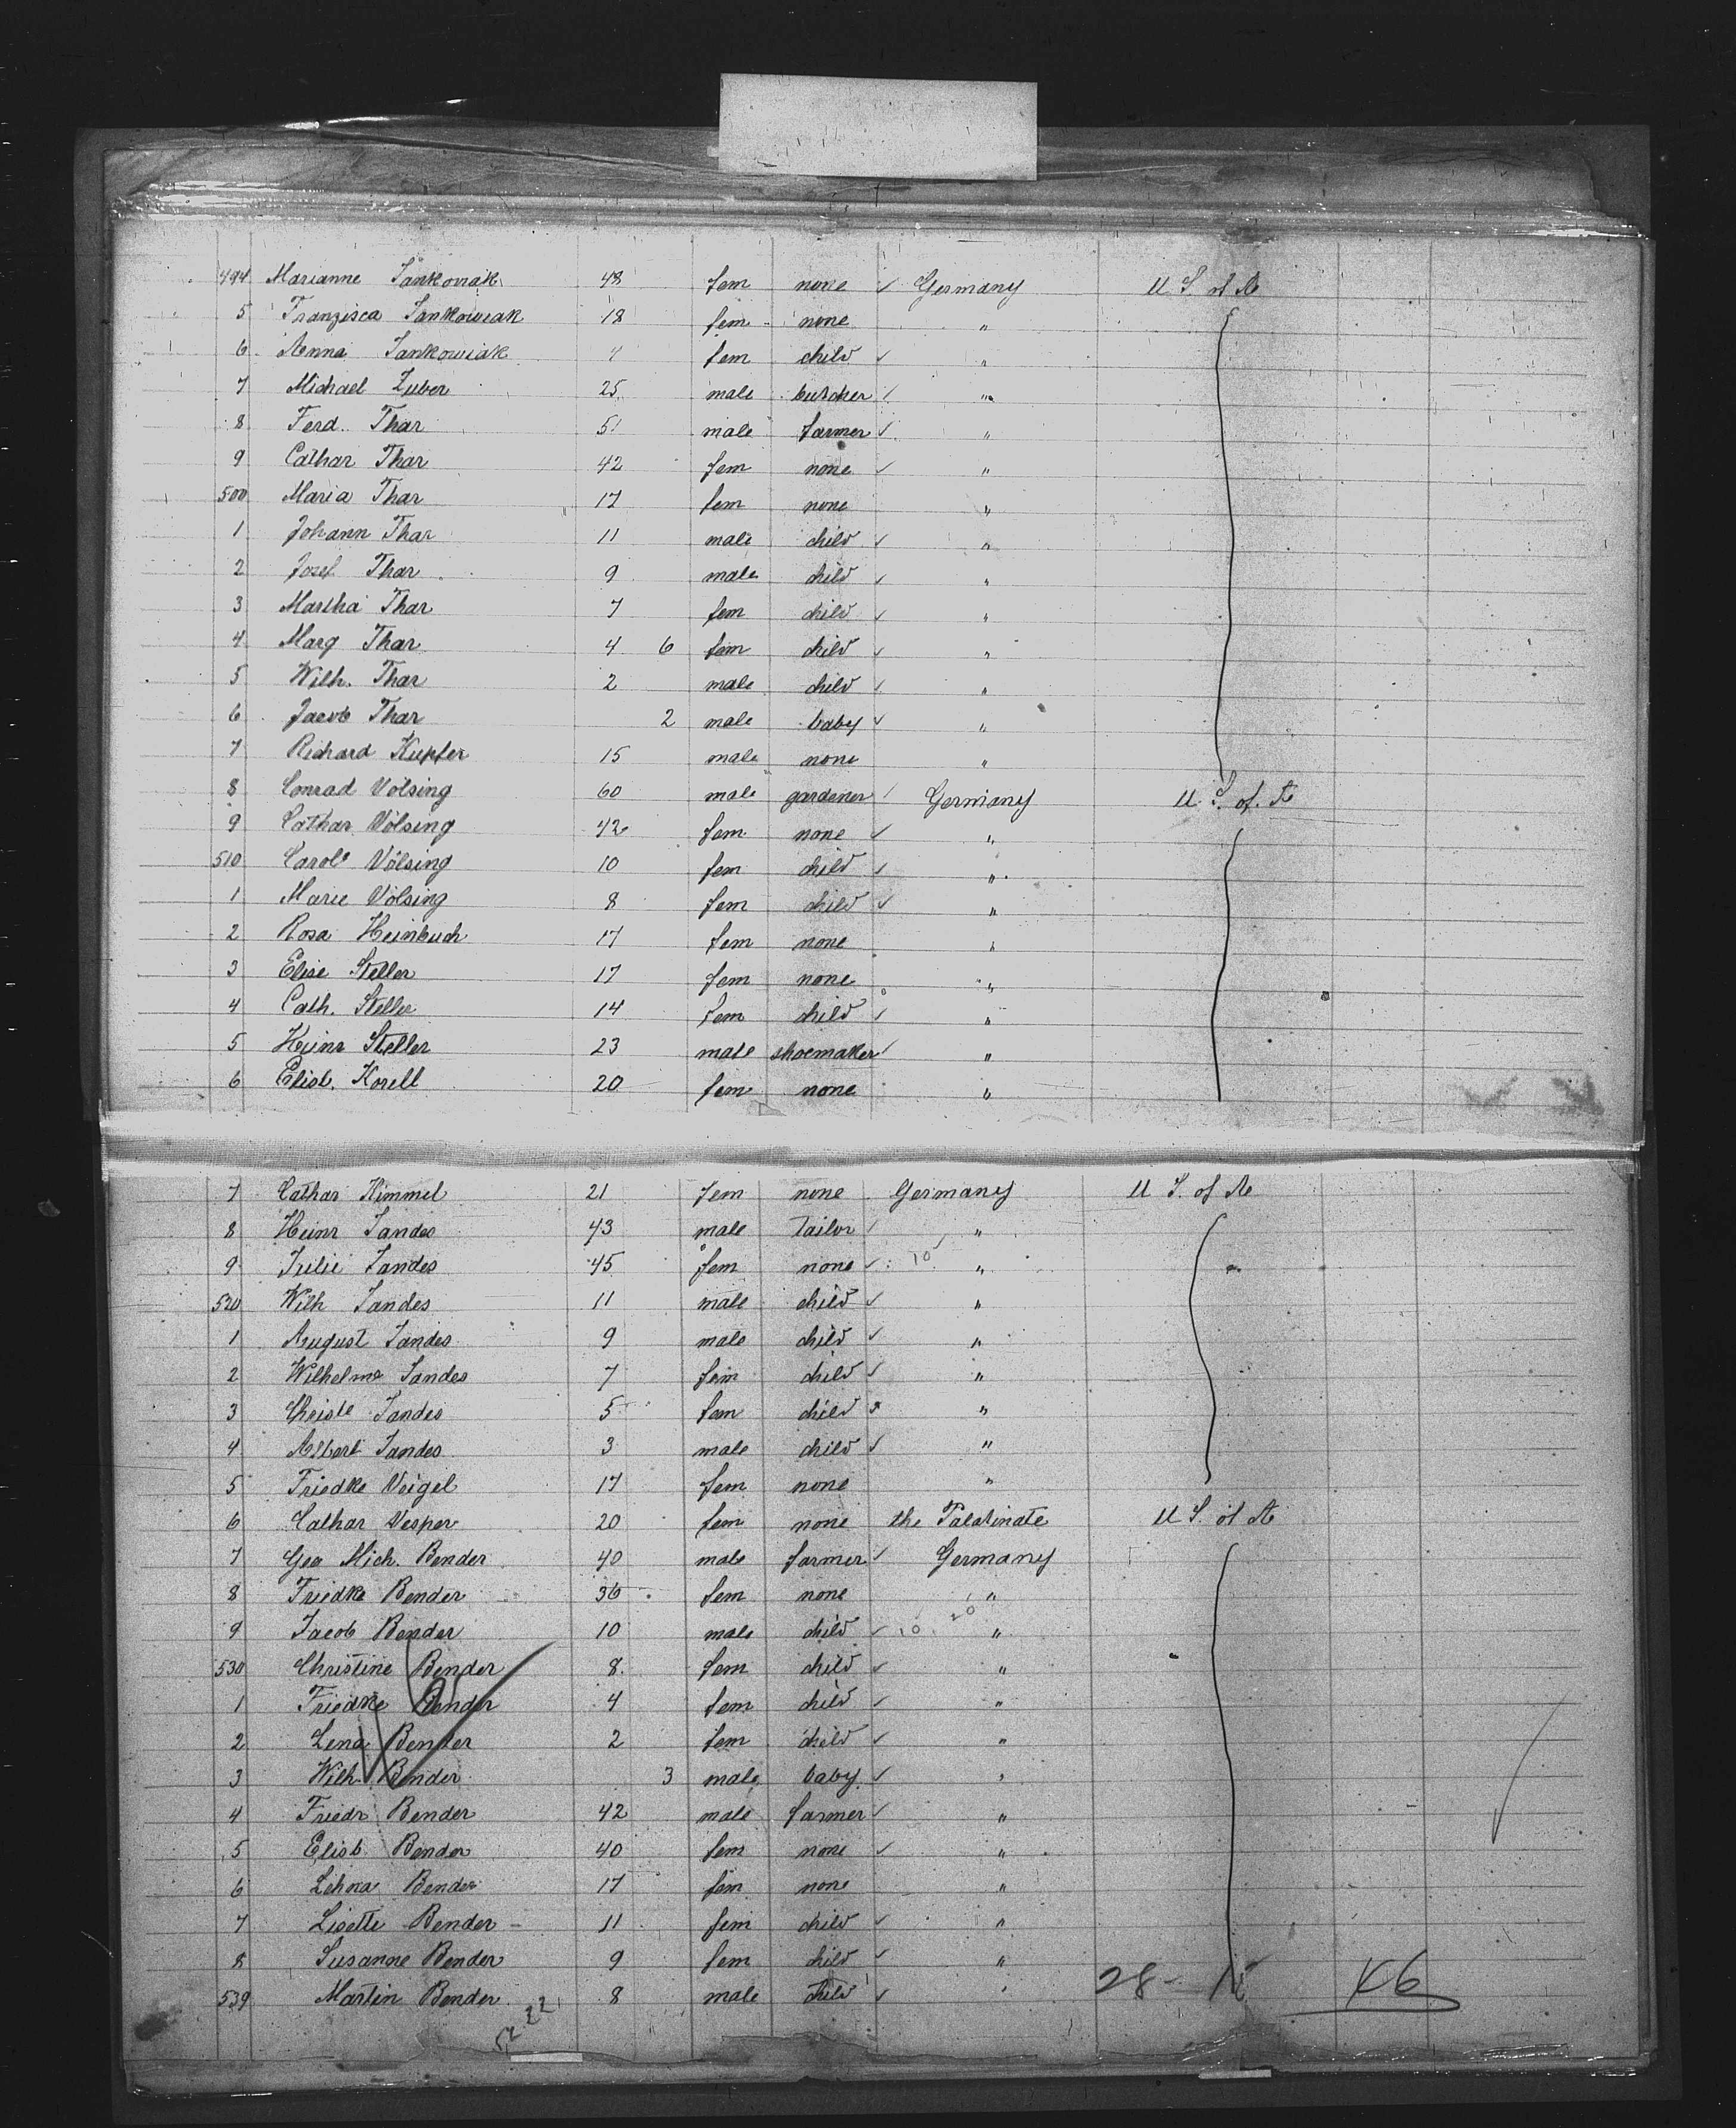 494 Marianne Jankowiak 48 fem none ✓ Germany U. S. of A
5 Franzisca Jankowiak 18 fem none "
6 Anna Jankowiak fem child ✓ "
7 Michael Zuber 25 male butcher ✓ "
8 Ferd. Thar 51 male farmer ✓ "
9 Cathar Thar 42 fem none ✓ "
500 Maria Thar 17 fem none "
1 Johann Thar 11 male child ✓ "
2 Josef Thar 9 male child ✓ "
3 Martha Thar 7 fem child ✓ "
4 Marg Thar 4 6 fem child ✓ "
5 Wilh. Thar 2 male child ✓ "
6 Jacob Thar 2 male baby ✓ "
7 Richard Kupfer 15 male none "
8 Conrad Völsing 60 male gardener ✓ Germany U. S. of. A
9 Cathar Völsing 42 fem none ✓ "
510 Carole Völsing 10 fem child ✓ "
1 Marie Völsing 8 fem child ✓ "
2 Rosa Heinbuch 17 fem none "
3 Elise Steller 17 fem none "
4 Cath. Steller 14 fem child ✓ "
5 Heinr Steller 23 male shoemaker ✓ "
6 Elisb. Korell 20 fem none "
7 Cathar Kimmel 21 fem none Germany U S. of A
8 Heinr Jandes 43 male Tailor ✓ "
9 Julie Jandes 45 fem none ✓ 10 "
520 Wilh Jandes 11 male child ✓ "
1 August Jandes 9 male child ✓ "
2 Wilhelme Jandes 7 fem child ✓ "
3 Christe Jandes 5 fem child "
4 Albert Jandes 3 male child ✓ "
5 Friedke Veigel 17 fem none "
6 Cathar Vesper 20 fem none the Palatinate U S. of A
7 Geo Mich. Bender 40 male farmer ✓ Germany
8 Friedke Bender 36 fem none "
9 Jacob Bender 10 male child ✓ 10 20 "
530 Christine Bender 8 fem child ✓ "
1 Friedke Bender 4 fem child ✓ "
2 Lena Bender 2 fem child ✓ "
3 Wilh. Bender 3 male baby ✓ "
4 Friedr Bender 42 male farmer ✓ "
5 Elisb Bender 40 fem none ✓ "
6 Lehna Bender 17 fem none "
7 Lisette Bender 11 fem child ✓ "
8 Susanne Bender 9 fem child ✓ "
539 Martin Bender 8 male child ✓ " 28